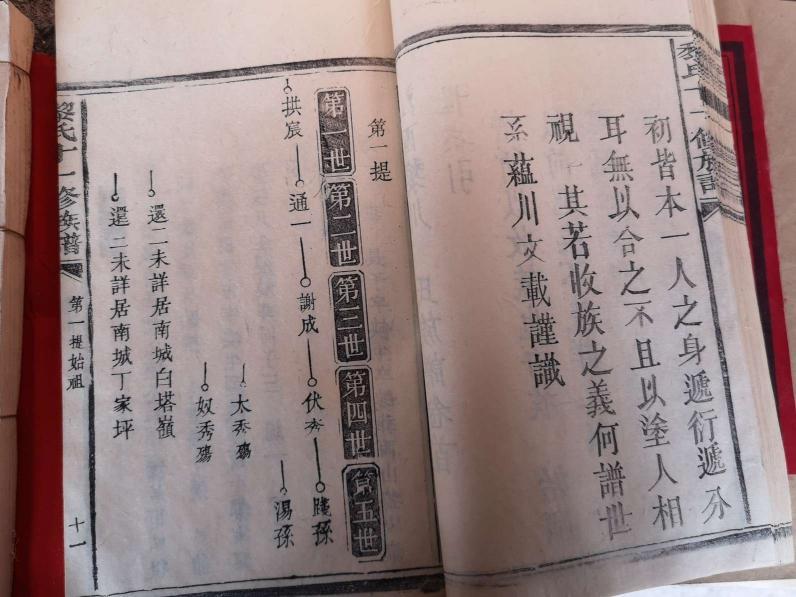 黎氏十一修族譜
初皆本一人之身遞衍遞分
耳無以合之不且以塗人相
視 其若收族之義何譜世
系蘊川文載謹識
第一提
第一世
第二世
第三世
第四世
第五世
拱宸
通一
謝成
伏秀
踐孫
湯孫
太秀殤
奴秀殤
還二未詳居南城白塔嶺
還二未詳居南城丁家坪
黎氏十一修族譜
第一提始祖
十一